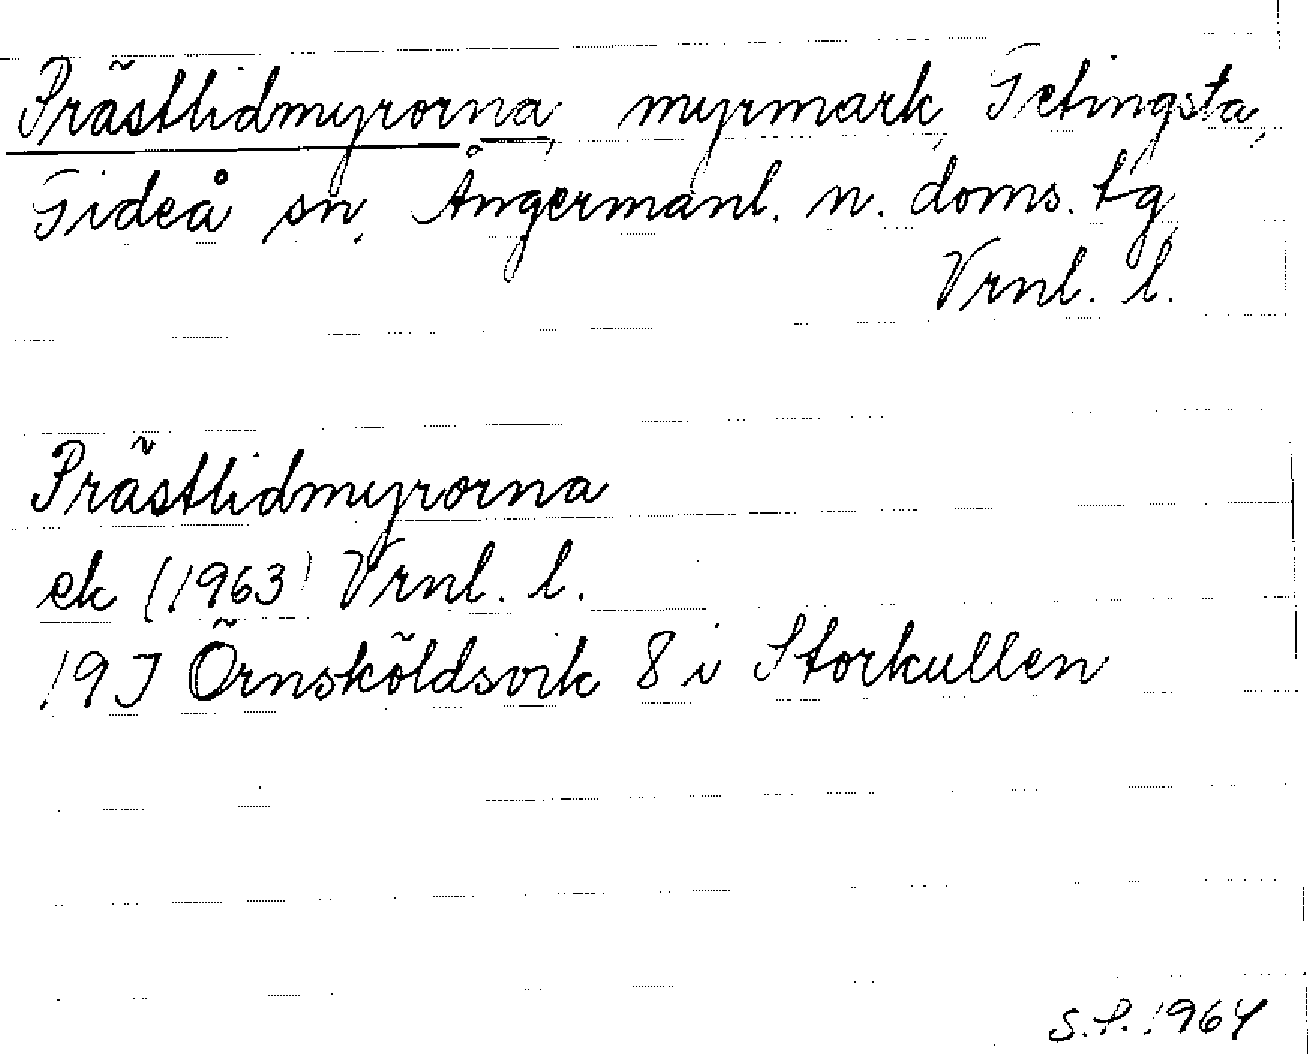 Prästlidmyrorna, myrmark, Getingsta,
Gideå sn, Ångermanl. n. doms. tg
Vrnl. l.
Prästlidmyrorna
ek (1963) Vrnl. l.
19J Örnsköldsvik 8 i Storkullen
S.P. 1964